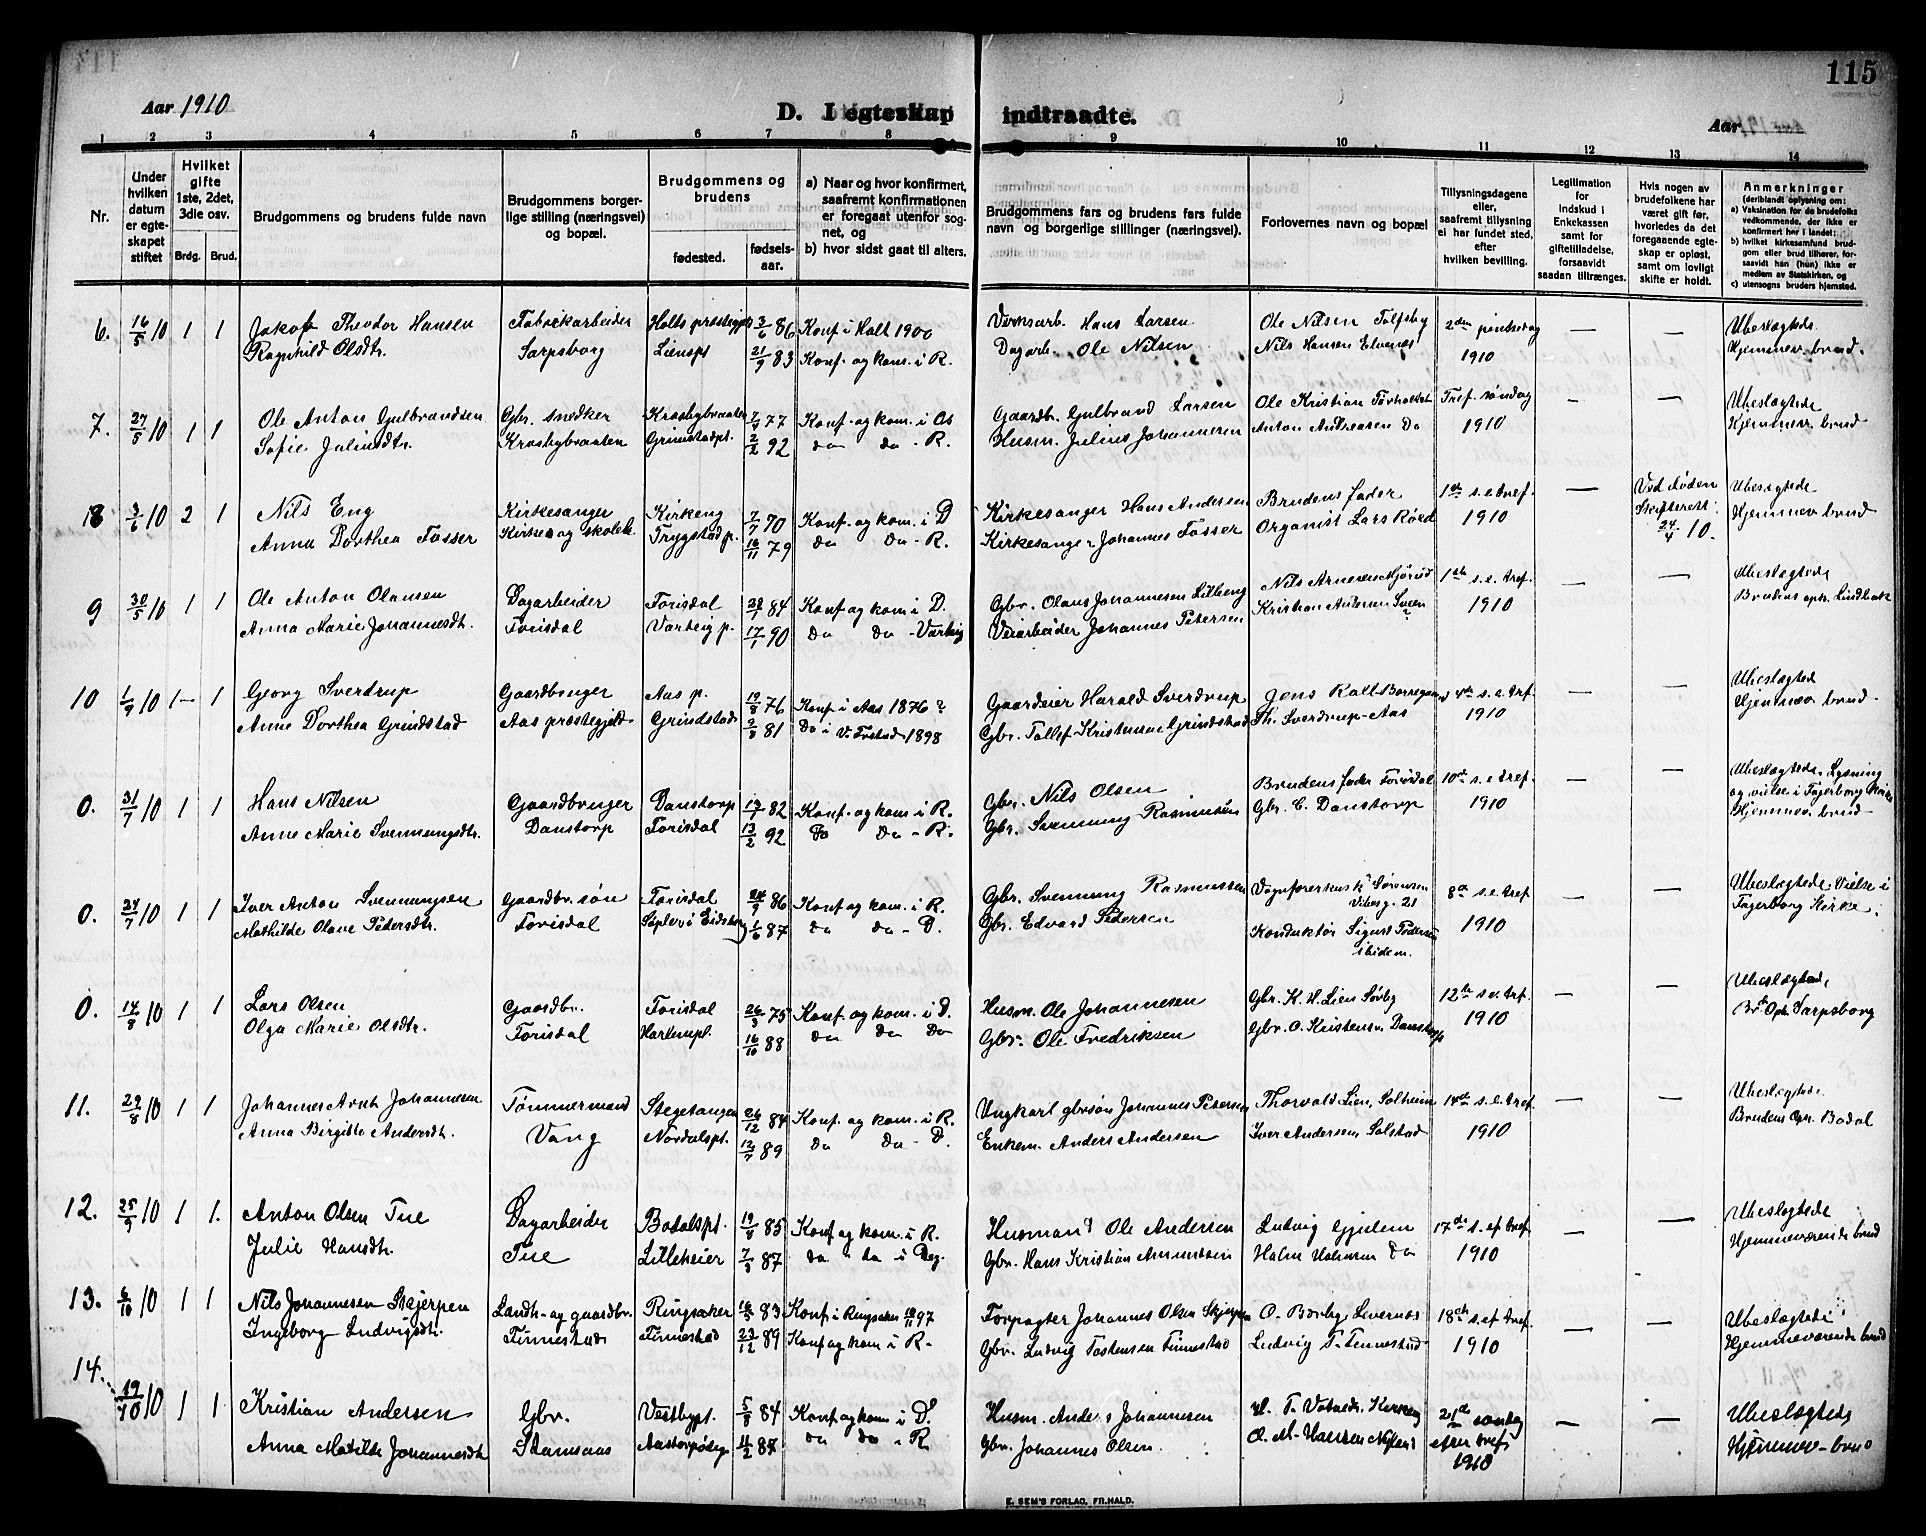 115
Aar 1910
D. I egteskap indtraadte.
Aar
1 2 3 4 5 6 7 8 9 10 11 12 13 14
Nr.
Under hvilken datum er egteskapet stiftet
Hvilket gifte 1ste, 2det, 3die osv.
Brdg. Brud.
Brudgommens og brudens fulde navn
Brudgommens borgerlige stilling (næringsvei) og bopæl.
Brudgommens og brudens
fødested.
fødselsaar.
a) Naar og hvor konfirmert, saafremt konfirmationen er foregaat utenfor sognet, og
b) hvor sidst gaat til alters.
Brudgommens fars og brudens fars fulde navn og borgerlige stillinger (næringsvei).
Forlovernes navn og bopæl
Tillysningsdagene eller, saafremt tillysning ei har fundet sted, efter hvilken bevilling.
Legitimation for indskud i Enkekassen samt for giftetilladelse, forsaavidt saadan tiltrænges.
Hvis nogen av brudefolkene har været gift før, hvorledes da det foregaaende egteskap er opløst, samt om lovligt skifte er holdt.
Anmerkninger (deriblandt oplysning om:
a) Vaksination for de brudefolks vedkommende, der ikke er konfirmert her i landet;
b) hvilket kirkesamfund brudgom eller brud tilhører, forsaavidt han (hun) ikke er medlem av Statskirken, og
c) utensogns bruders hjemsted.
6. 16/5 10 1 1 Jakob Theodor Hansen Fabrikarbeider Holts præstegj. 3/6 86 Konf. i Holt 1900 Verksarb. Hans Larsen Ole Nilsen 2den pintsedag — — Ubeslægtede
Ragnhild Olsdtr. Sarpsborg Lienspl 21/9 83 Konf. og kom. i R. Dagarb. Ole Nilsen Nils Hansen Elvenes 1910 Hjemmev. brud.
7. 27/5 10 1 1 Ole Anton Gulbrandsen Gbr. snedker Krosbybraaten 7/9 77 Konf. og kom. i Os Gaardb. Gulbrand Larsen Ole Kristian Tref. søndag - — Ubeslægtede
Sofie Juliusdtr. Krosbybraaten Grimstadpl. 2/2 92 do do - R. Husm. Julius Johannesen Anton Andreasen Do 1910 Hjemmev. brud
8 3/6 10 2 1 Nils Eng Kirkesanger Kirkeng 7/7 70 Konf. og kom. i D Kirkesanger Hans Andersen Brudens fader 1ste s. e. tref. — Ved døden Ubeslægtede
Anna Dorthea Fosser Kirkes. og skolel. Trygstad p. 16/11 79 Do Do - R. Kirkesanger Johannes Fosser Organist Lars Röed 1910 Skifteret 24/4 10. Hjemmev. brud
9 30/5 10 1 1 Ole Anton Olausen Dagarbeider Torisdal 28/9 84 Konf og kom i D. Gbr. Olaus Johannesen Lilleng Nils Arnesen Mjørud 1ste s. e. tref. — — Ubeslægtede
Anna Marie Johannesdtr. Torisdal Varteig p. 17/1 90 Do Do - Varteig Veiarbeider Johannes Petersen Kristian Andersen Sveen 1910 Brudens oph. Lindbak
10 1/9 10 1— 1 Georg Sverdrup Gaardbruger Aas p. 19/8 76 Konf. i Aas 1876 ? Gaardeier Harald Sverdrup Jens Rolt 4de s. e. tref. — — Ubeslægted
Anne Dorthea Grindstad Aas præstegjeld Grindstad 2/8 81 Do i V. Frstad 1898 Gbr. Tollef Kristensen Grindstad Th. Sverdrup - Aas 1910 Hjemmev. brud -
0. 31/7 10 1 1 Hans Nilsen Gaardbruger Danstorp 13/7 82 Konf. og kom. i R. Gbr. Nils Olsen Brudens fader Torisdal 10de s. e. tref. — — Ubeslægtede, Lysning
Anne Marie Svenningsdtr. Danstorp Torisdal 13/2 92 Do Do - R. Gbr. Svenning Rasmussen Gbr. C. Danstorp 1910 og vielse i Fagerborg Kirke Hjemmev. brud -
0. 24/7 10 1 1 Iver Anton Svenningsen Gaardbr. søn Torisdal 24/9 86 Konf og kom. i R. Gbr. Svenning Rasmussen Vognfører 8de s. e. tref — — Ubeslægtede. Vielse i
Mathilde Olave Pedersdtr. Torisdal 1/6 87 Do Do - D. Gbr. Edvard Pedersen Konduktør Sigurd Pedersen ibidem. 1910 Fagerborg Kirke.
0. 14/8 10 1 1 Lars Olsen Gaardbr. Torisdal 26/3 75 Konf. og kom. i D. Husm. Ole Johannesen Gbr. K. H. Lien Sørby 12te s. e. tref. — — Ubeslægtede,
Olga Marie Olsdtr. Torisdal Harlempl. 16/10 88 Do Do Do Gbr. Ole Fredriksen Gbr. O. Kristensen Danstorp 1910 Br. Oph. Sarpsborg
11. 29/8 10 1 1 Johannes Arnt Johannesen Tømmermand Stegetangen 26/12 84 Konf. og kom. i R. Ungkarl gbrsøn Johannes Petersen Thorvald Lien, Solheim 14de s. e. tref — — Ubeslægtede
Anna Birgitte Andersdtr. Vang Nordalspl. 12/7 89 Do Do - D. Enkem. Anders Andersen Iver Andersen, Solstad 1910 Brudens Oph. Bodal
12. 25/9 10 1 1. Anton Olsen Tue Dagarbeider Bodalspl. 19/4 85 Konf. og kom. i R. Husmand Ole Andersen Ludvig Gjulem 17de s. ef tref. — — Ubeslægtede
Julie Hansdtr. Tue Lilleheier 7/3 87 do " do i Deg. Gbr. Hans Kristian Amundsen Halvor Halvorsen Do 1910 Hjemmeværende brud
13. 6/10 10 1 1 Nils Johannesen Skjerpen Landh. og gaardbr. Ringsaker 16/5 83 Konf. i Ringsaker 97 Forpagter Johannes Olsen Skjerpen O. Børby, Levernæs 18de s. ef tref. — — Ubeslægtede
Ingeborg Ludvigsdtr. Finnestad Finnestad 23/12 89 Konf og kom i R. Gbr. Ludvig Tostensen Finnestad Ludvig T. Finnestad 1910 Hjemmeværende brud
14. 19/10 10 1 1 Kristian Andersen Gbr. Vestbypl. 5/8 84 Konf og kom i D. Husm. Anders Johannesen H. T. Kirkeng 21de søndag — — Ubeslægtede
Anna Matilde Johannesdtr. Stamsaas 11/2 87 Do Do " R Gbr. Johannes Olsen. O. M. Hansen Nyland efter tref. 1910 Hjemmev. brud
E. SEM'S FORLAG, FR.HALD.